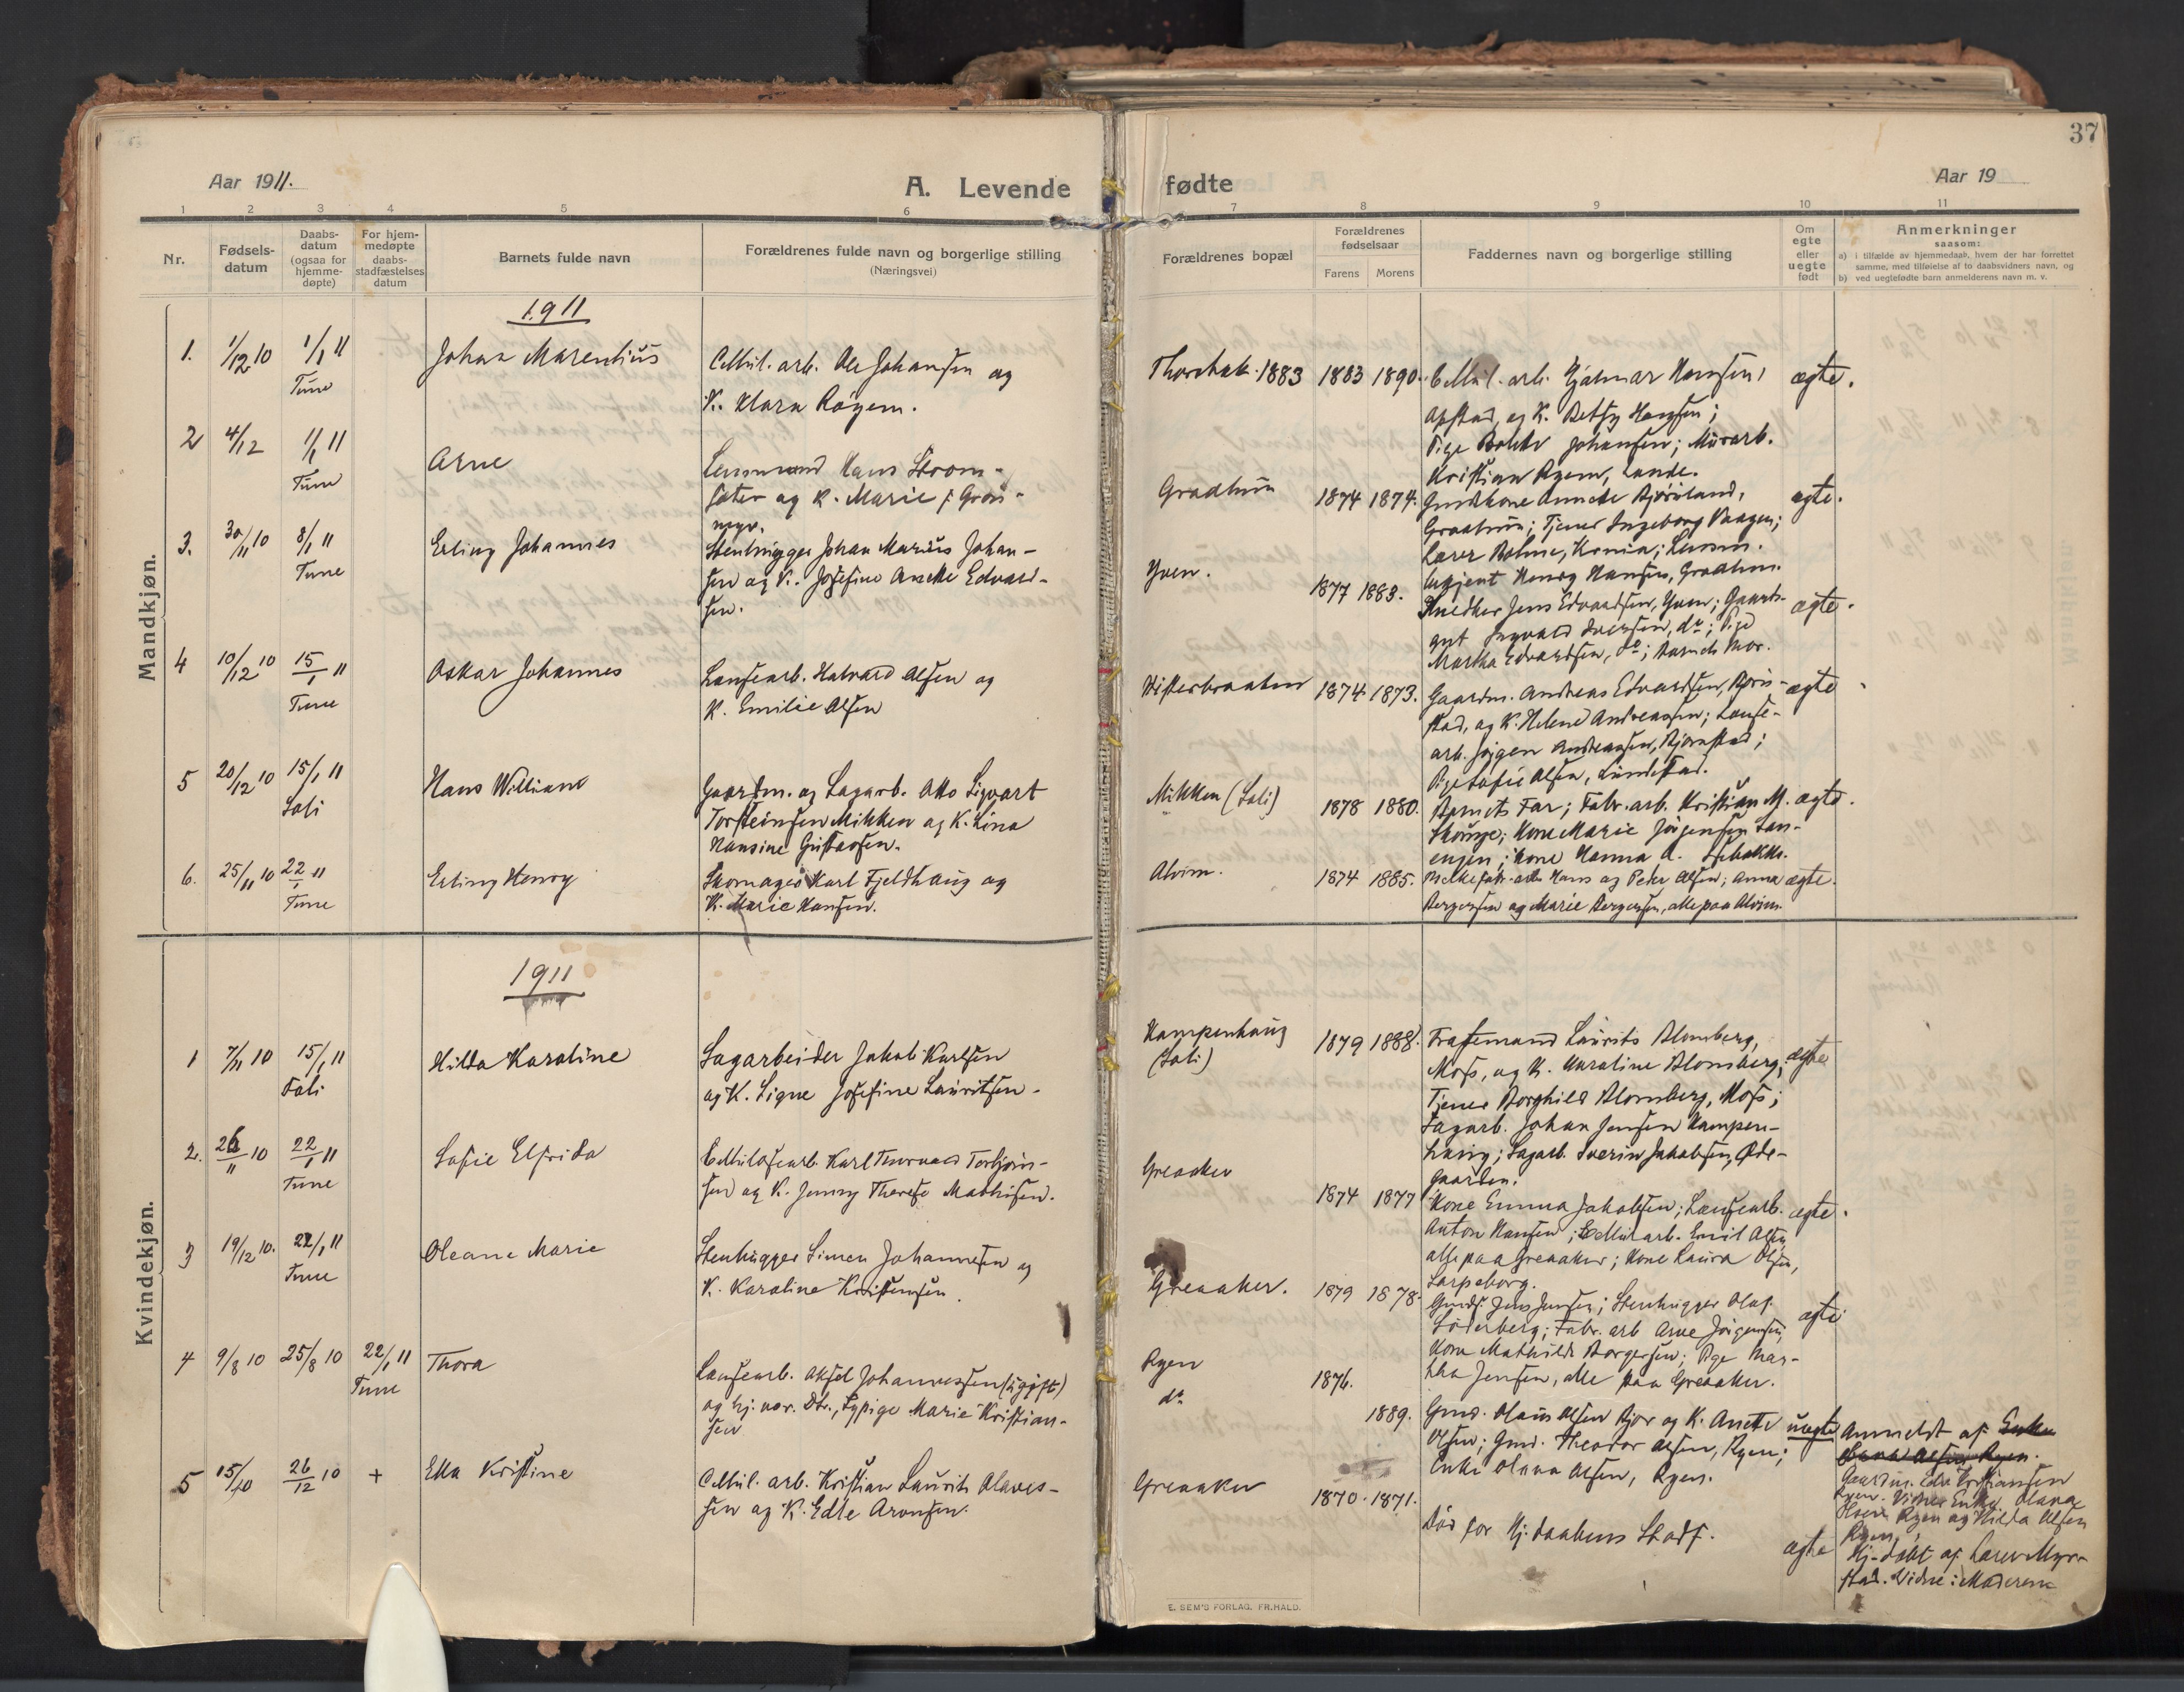 37
Aar 1911.
A. Levende
fødte
Aar 19
1 2 3 4 5 6 7 8 9 10 11
Nr.
Fødsels-
datum
Daabs-
datum
(ogsaa for
hjemme-
døpte)
For hjem-
medøpte
daabs-
stadfæstelses
datum
Barnets fulde navn
Forældrenes fulde navn og borgerlige stilling
(Næringsvei)
Forældrenes bopæl
Forældrenes
fødselsaar
Farens Morens
Faddernes navn og borgerlige stilling
Om
egte
eller
uegte
født
Anmerkninger
saasom:
a) i tilfælde av hjemmedaab, hvem der har forrettet
samme, med tilføielse af to daabsvidners navn, og
b) ved uegtefødte barn anmelderens navn m. v.
Mandkjøn.
1911
1. 1/12 10 1/1 11 Tune
Johan Marentius
Cellul. arb. Ole Johansen og
K. Klara Røyem.
1883 1883 1890.
Cellul. arb. Hjalmar Hansen,
og K. Betsy Hansen;
Pige Johansen; Murarb.
Kristian Ryen, Lande.
ægte.
2 4/12 1/1 11 Tune
Arne
Lensmand Hans Strom-
sæter og K. Marie f. Grøn-
Graatrun
1874 1874.
ægte.
3. 30/11 10 8/1 11 Tune
Erling Johannes
Stenhugger Johan Marius Johan-
sen og K. Josefine Anette Edvard-
sen.
Yven.
1877 1883.
Snedker Jens Edvardsen, Yven; Gaardb-
Ingvald Iversen, do; Pige
Martha Edvardsen, do; Barnets Mor.
ægte.
4 10/12 10 15/1 11 Tune
Oskar Johannes
Lænsearb. Halvard Olsen og
K. Emilie Olsen
Vesterbraaten
1874 1873.
Gaardm. Andreas Edvardsen, Bjørn-
stad, og K. Helene Andreassen; Lænse-
arb. Jørgen Andreassen, Bjørnstad;
Pige Sofie Olsen, Lundestad.
ægte
5 20/12 10 15/1 11 Soli
Hans William
Gaardm. og Sagarb. Otto Sigvart
Torsteinsen Mikken og K. Lina
Hansine Gustavsen.
Mikken (Soli)
1878 1880.
Barnets Far; Fabr. arb. Kristian M.
Skouge; Kone Marie Jørgensen San-
engen; Kone Hanna A.
ægte.
6. 25/11 10 22/1 11 Tune
Erling Henry
Skomager Karl Fjeldhaug og
K. Marie Hansen.
Alvim.
1874 1885.
Hans og Peter Olsen; Anna
Bergersen og Marie Bergersen, alle paa Alvim.
ægte.
Kvindekjøn.
1911
1 7/11 10 15/1 11 Soli
Hilda Karoline
Sagarbeider Jakob Karlsen
og K. Signe Josefine Lauritsen.
Kampenhaug
(Soli)
1879 1888.
Laurits Blomberg,
Moss, og K. Karoline Blomberg;
Tjener Borghild Blomberg, Moss;
Sagarb. Johan Jensen Kampen-
haug; Sagarb. Sverin Jakobsen, Øde-
gaarden.
ægte
2. 26/11 10 22/1 11 Tune
Sofie Elfrida
Cellulosearb. Karl Thorvald Torbjørn-
sen og K. Jenny Therese Mathisen.
Greaaker
1874 1877
Kone Emma Jakobsen; Lænsearb.
Anton Hansen; Cellul arb. Emil Olsen,
alle paa Greaaker; Kone Laura Olsen,
Sarpsborg.
ægte.
3 19/12 10. 22/1 11 Tune
Oleane Marie
Stenhugger Simen Johannesen og
K. Karoline Kristensen.
Greaaker.
1879 1878.
Jens Jensen; Stenhugger Olaf
Söderberg; Fabr. arb Arne Jørgensen,
Kone Mathilde Borgersen; Pige Mar-
tha Jensen, alle paa Greaaker.
ægte
4 9/8 10 25/8 10 22/1 11 Tune
Thora
Lænsearb. Aksel Johannessen (ugift)
og hj. vær. Dtr., Sypige Marie Kristian-
sen
Ryen
do
1876.
1889.
Gmd. Olaus Olsen Bjor og K. Anette
Olsen; Gmd. Theodor Olsen, Ryen;
Enke Olava Olsen, Ryen.
uægte
Anmeldt af Enke
Olava Olsen Ryen.
Gaardm. Edv. Kristiansen
Ryen. Vidner Enke Olava
Olsen Ryen og Hilda Olsen
Ryen.
5 15/10 26/12 10 +
Ella Kristine
Cellul. arb. Kristian Laurits Olaves-
sen og K. Edle Aronsen.
Greaaker
1870. 1871.
Død før Hj. daabens Stadf.
ægte
Hj. døbt af Lærer Myr-
stad. Vidne: Moderen
E. SEM'S FORLAG, FR.HALD.